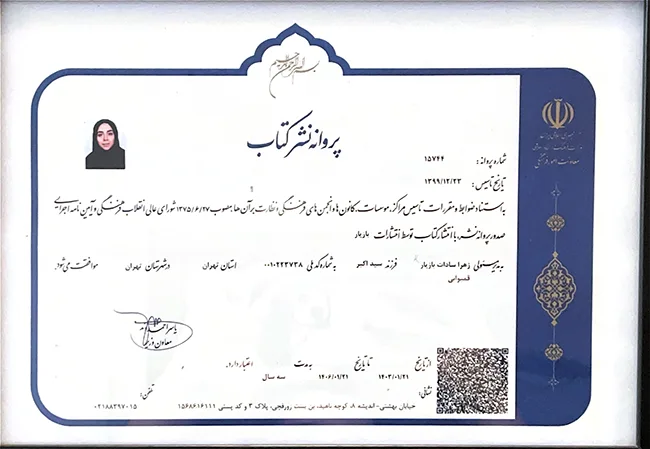 بسم الله الرحمن الرحیم
پروانه نشر کتاب
شماره پروانه : ۱۵۷۴۴
تاریخ تاسیس : ۱۳۹۹/۱۲/۲۳
به استناد ضوابط و مقررات تاسیس مراکز، موسسات، کانون ها و انجمن های فرهنگی و نظارت بر آن ها، مصوب ۱۳۷۵/۶/۲۷ شورای عالی انقلاب فرهنگی و آیین نامه اجرایی
صدور پروانه نشر، با انتشار کتاب توسط انتشارات بازیار
به مدیر مسئولی زهرا سادات بازیار قمبوانی فرزند سید اکبر به شماره کد ملی ۰۰۱۰۲۲۳۷۳۸ استان تهران در شهرستان تهران موافقت می شود.
معاونت امور فرهنگی
از تاریخ ۱۴۰۳/۰۱/۲۱ تا تاریخ ۱۴۰۶/۰۱/۲۱ به مدت سه سال اعتبار دارد.
نشانی:
خیابان بهشتی - اندیشه ۸، کوچه ناهید، بن بست روزرقچی، پلاک ۳ و کد پستی ۱۵۶۸۶۱۶۱۱۱
تلفن:
۰۲۱۸۸۳۹۷۰۱۵